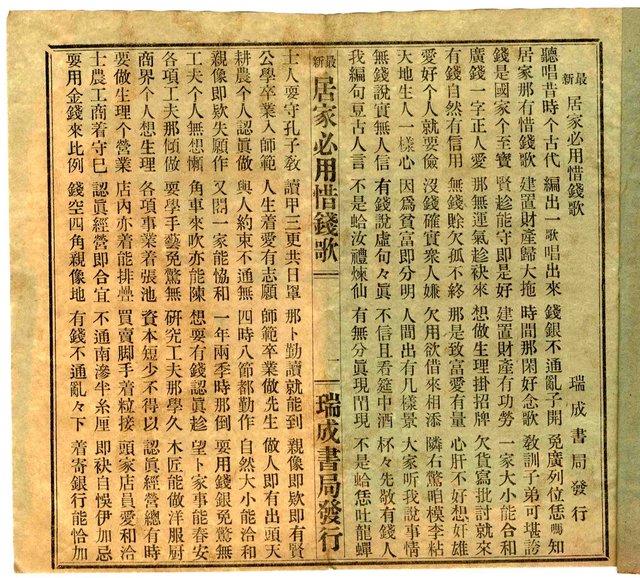 最新 居家必用惜錢歌 瑞成書局發行
聽唱昔時个古代 編出一歌唱出來 錢銀不通亂子開 免廣列位恁嗎知
居家那有惜錢歌 建置財產歸大拖 時間那閑好念歌 敎訓子弟可堪誇
錢是國家个至寶 賢趁能守即是好 建置財產有功勞 一家大小能合和
廣錢一字正人愛 那無運氣趁袂來 想做生理掛招牌 欠貨寫批討就來
有錢自然有信用 無錢賒欠孤不終 那是致富愛有量 心肝不好想奸雄
愛好个人就要儉 沒錢確實衆人嫌 欠用欲借來相添 隣右驚咱模李粘
大地生人一樣心 因爲貧富即分明 人間出有几樣景 大家听我說事情
無錢說實無人信 有錢說虛句々眞 不信且看筵中酒 杯々先敬有錢人
我編句豆古人言 不是蛤汝禮煉仙 有無分眞現鬥現 不是蛤恁吐龍蟬
最新 居家必用惜錢歌 一 瑞成書局發行
士人要守孔子敎 讀甲三更共日罩 那卜勤讀就能到 親像即欵即有賢
公學卒業入師範 人生着愛有志願 師範卒業做先生 做人即有出頭天
耕農个人認眞做 與人約束不通無 四時八節都勤作 自然大小能洽和
親像即欵失願作 又閙一家能協和 一年兩季時那倒 要用錢銀免驚無
工夫个人無想懶 角車來吹亦能陳 想要有錢認眞趁 望卜家事能春安
各項工夫那傾做 要學手藝免驚無 研究工夫那學久 木匠能做洋服厨
商界个人想生理 各項事業着張池 資本短少不得以 認眞經營總有時
要做生理个營業 店內亦着能排疊 買賣脚手着粒接 頭家店員愛和洽
士農工商着守巳 認眞經營即合宜 不通南滲半糸厘 即袂自悞伊加忌
要用金錢來比例 錢空四角親像地 有錢不通亂々下 着寄銀行能恰加